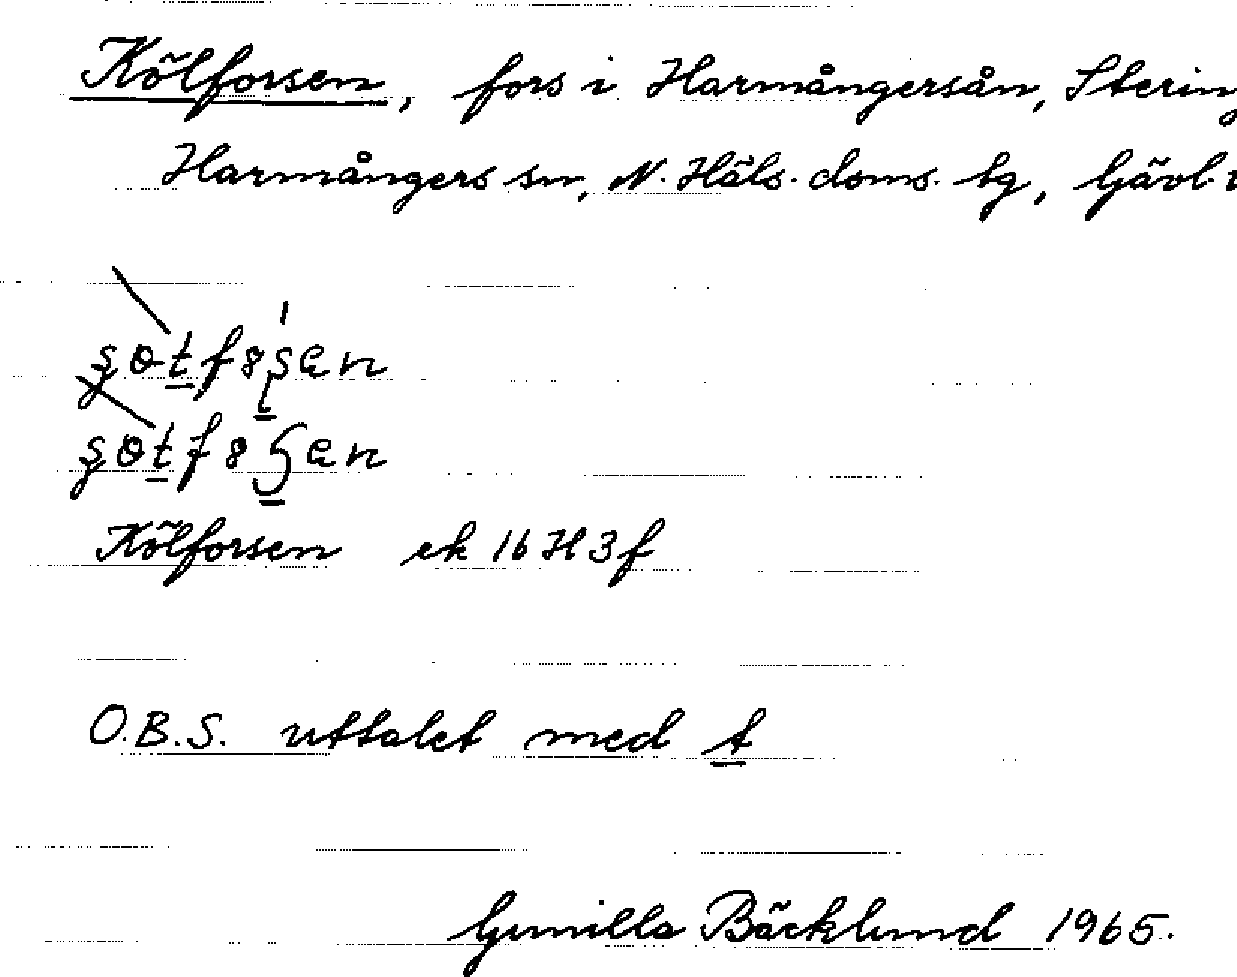 Kölforsen, fors i Harmångersån, Stering
Harmångers sn, N. Häls. doms. tg, Gävl.
Kölforsen ek 16 H 3 f
O.B.S. uttalet med t
Gunilla Bäcklund 1965.